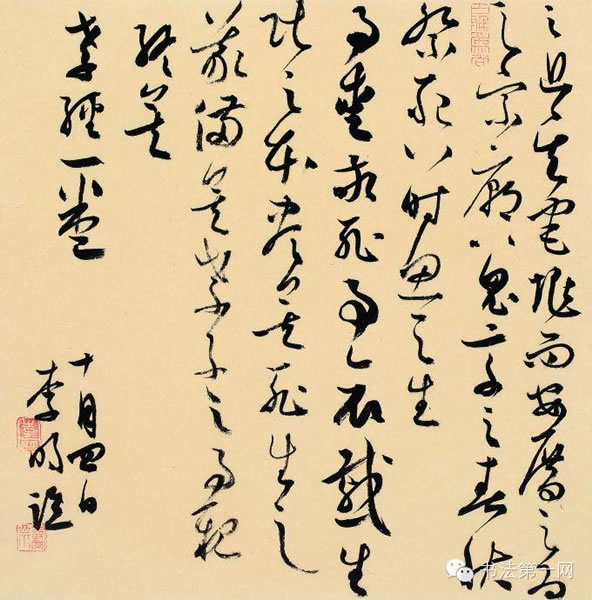 之其宅兆而安厝之為
之宗廟以鬼享之春秋
祭祀以时思之生
事愛敬死事哀慼生
民之本盡矣死生之
義備矣孝子之事親
終矣
孝經一卷
十月四日
李明
书法第一网